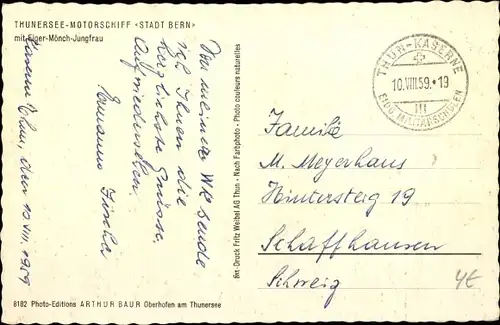 THUNERSEE-MOTORSCHIFF «STADT BERN»
mit Eiger-Mönch-Jungfrau
THUN-KASERNE
10.VIII.59.-19
III
EIDG. MILITÄRSCHULEN
Kaserne Thun, den 10 VIII. 1959
Von meinem WK sende
ich Ihnen die
herzlichsten Grüsse.
Auf wiedersehen
Ermanno
Familie
M. Meyerhans
Hintersteig 19
Schaffhausen
Schweiz
4€
Druck Fritz Weibel AG Thun - Nach Farbphoto - Photo couleurs naturelles
8182 Photo-Editions ARTHUR BAUR Oberhofen am Thunersee